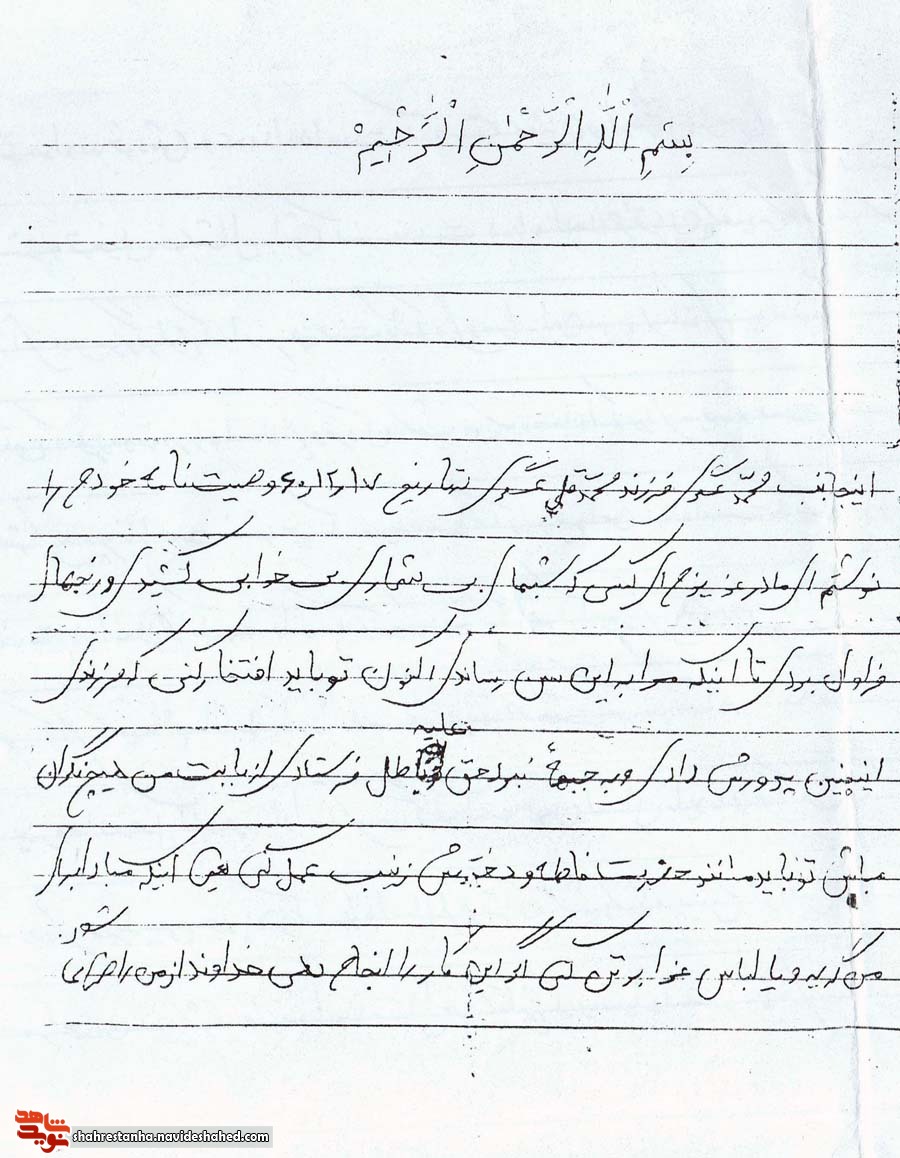 بِسْمِ اللَّهِ الرَّحْمٰنِ الرَّحِیْمْ
اینجانب محمّد فرزند محمّد قلی بتاریخ ۶۰٫۱۲٫۱۷ وصیت نامه خودم را
نوشتم ای مادر عزیزم ای کسی که شبهای بی شماری بی خوابی کشیدی و رنجهای
فراوان بردی تا اینکه مرا به این سن رساندی اکنون تو باید افتخار کنی که فرزندی
علیه
اینچنین پرورش دادی و به جبههٔ نبرد حق باطل فرستادی از بابت من هیچ نگران
مباش تو باید مانند حضرت فاطمه و دخترش زینب عمل کنی یعنی اینکه مبادا برای
شود
من گریه و یا لباس عزا بر تن کنی اگر این کار را انجام دهی خداوند از من ناراضی
نوید شاهد
shahrestanha.navideshahed.com